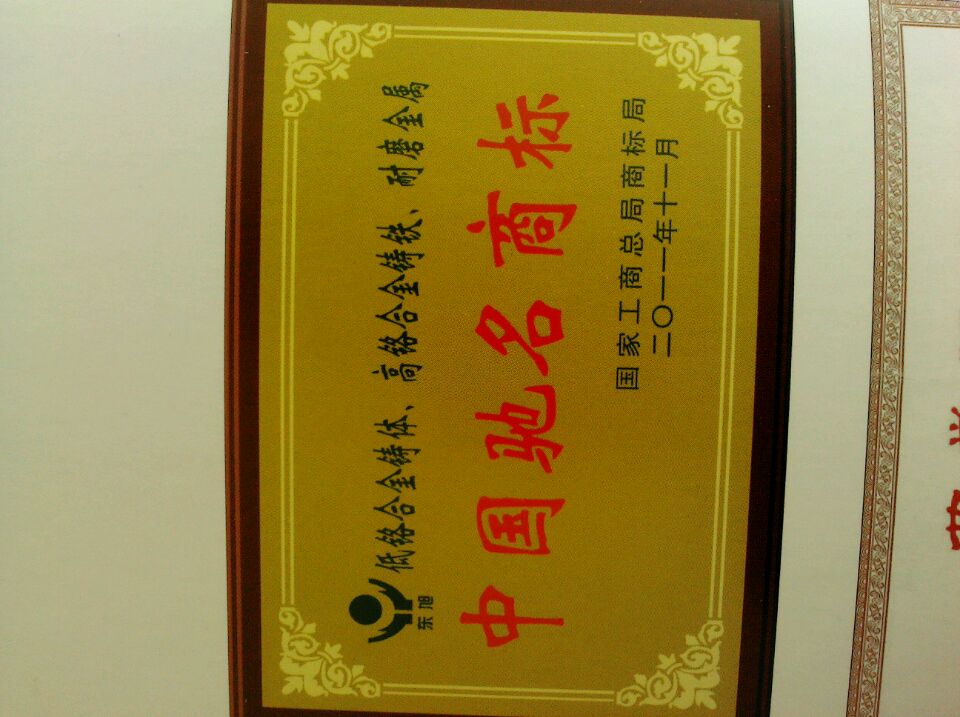 东旭
低铬合金铸体、高铬合金铸铁、耐磨金属
中国驰名商标
国家工商总局商标局
二〇一一年十一月